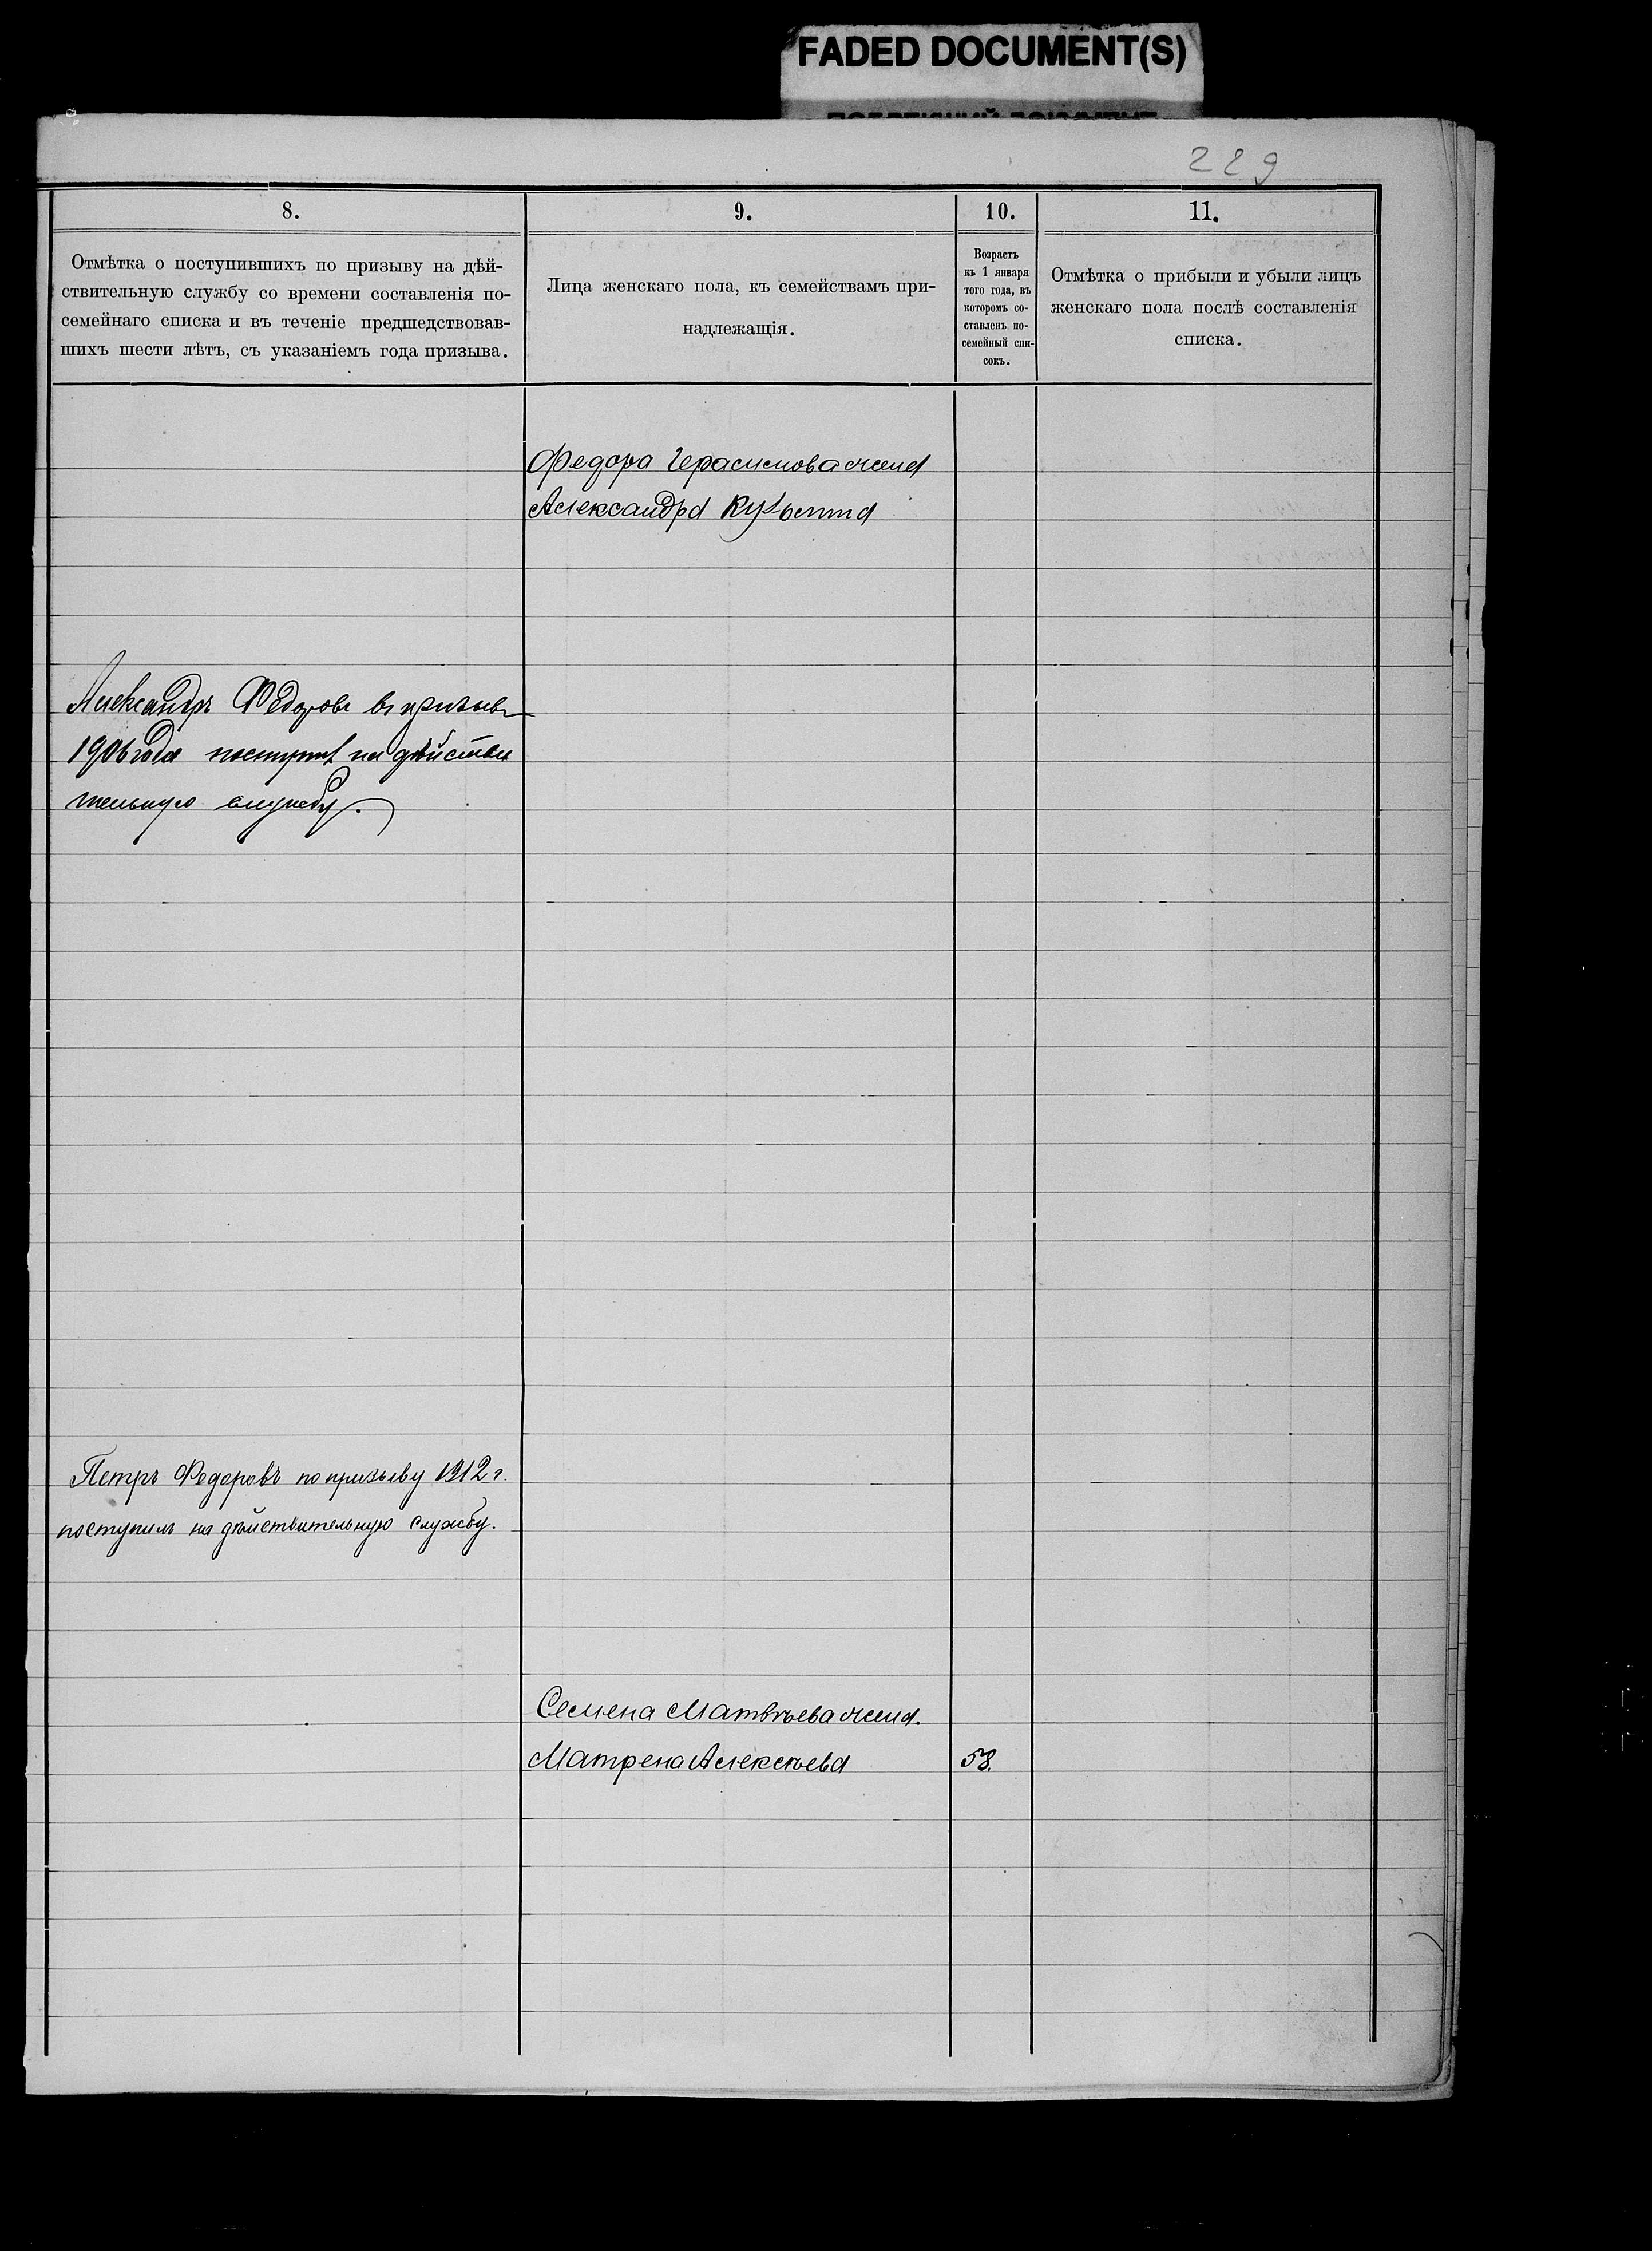 FADED DOCUMENT(S)
229
8.
Отмѣтка о поступившихъ по призыву на дѣй-
ствительную службу со времени составленія по-
семейнаго списка и въ теченіе предшедствовав-
шихъ шести лѣтъ, съ указаніемъ года призыва.
9.
Лица женскаго пола, къ семействамъ при-
надлежащія.
10.
Возрастъ
къ 1 января
того года, въ
которомъ со-
ставленъ по-
семейный спи-
сокъ.
11.
Отмѣтка о прибыли и убыли лицъ
женскаго пола послѣ составленія
списка.
Федора Герасимова жена
Александра
Александръ Федоровъ въ призывъ
1906 года поступилъ на дѣйстви
тельную службу.
Петръ Федоровъ по призыву 1912 г.
поступилъ на дѣйствительную службу.
Семена Матвѣева жена.
Матрена Алексѣева 58.